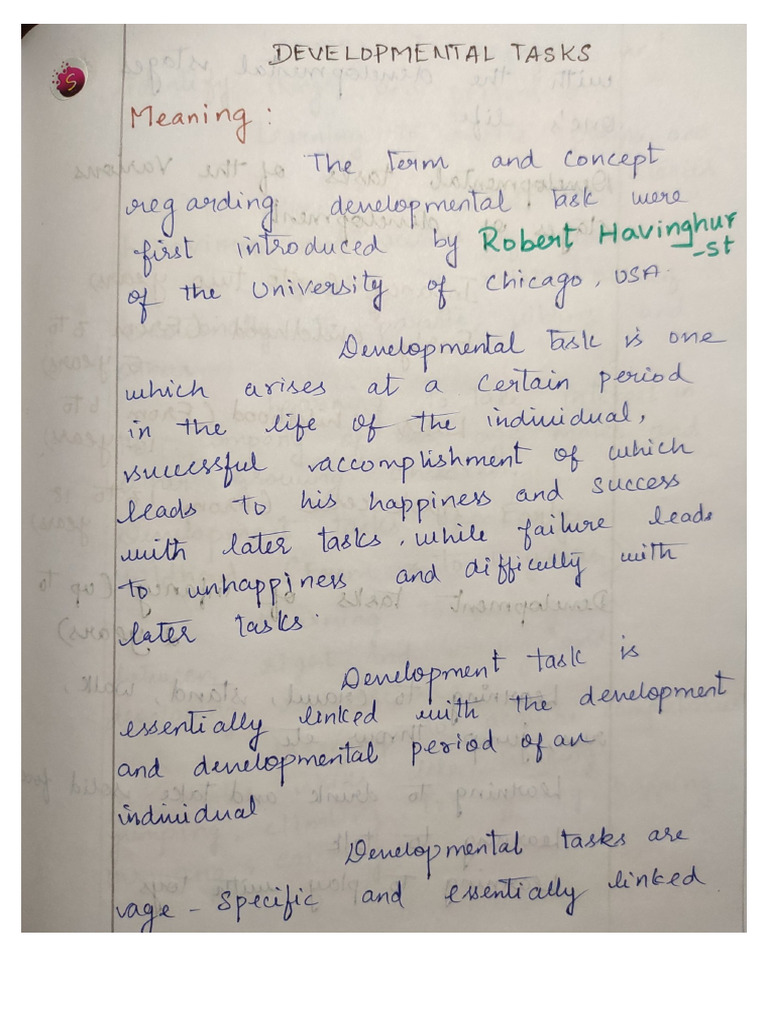 S
DEVELOPMENTAL TASKS
Meaning :
The term and concept
regarding developmental task were
first introduced by Robert Havinghur
-st
of the University of Chicago, USA.
Developmental task is one
which arises at a certain period
in the life of the individual,
successful accomplishment of which
leads to his happiness and success
with later tasks, while failure leads
to unhappiness and difficully with
later tasks.
Development task is
essentially linked with the development
and developmental period of an
individual
Developmental tasks are
age - Specific and essentially linked